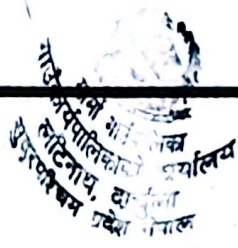 गाउँ कार्यपालिकाको कार्यालय
लटिनाथ, दार्चुला
सुदूरपश्चिम प्रदेश नेपाल